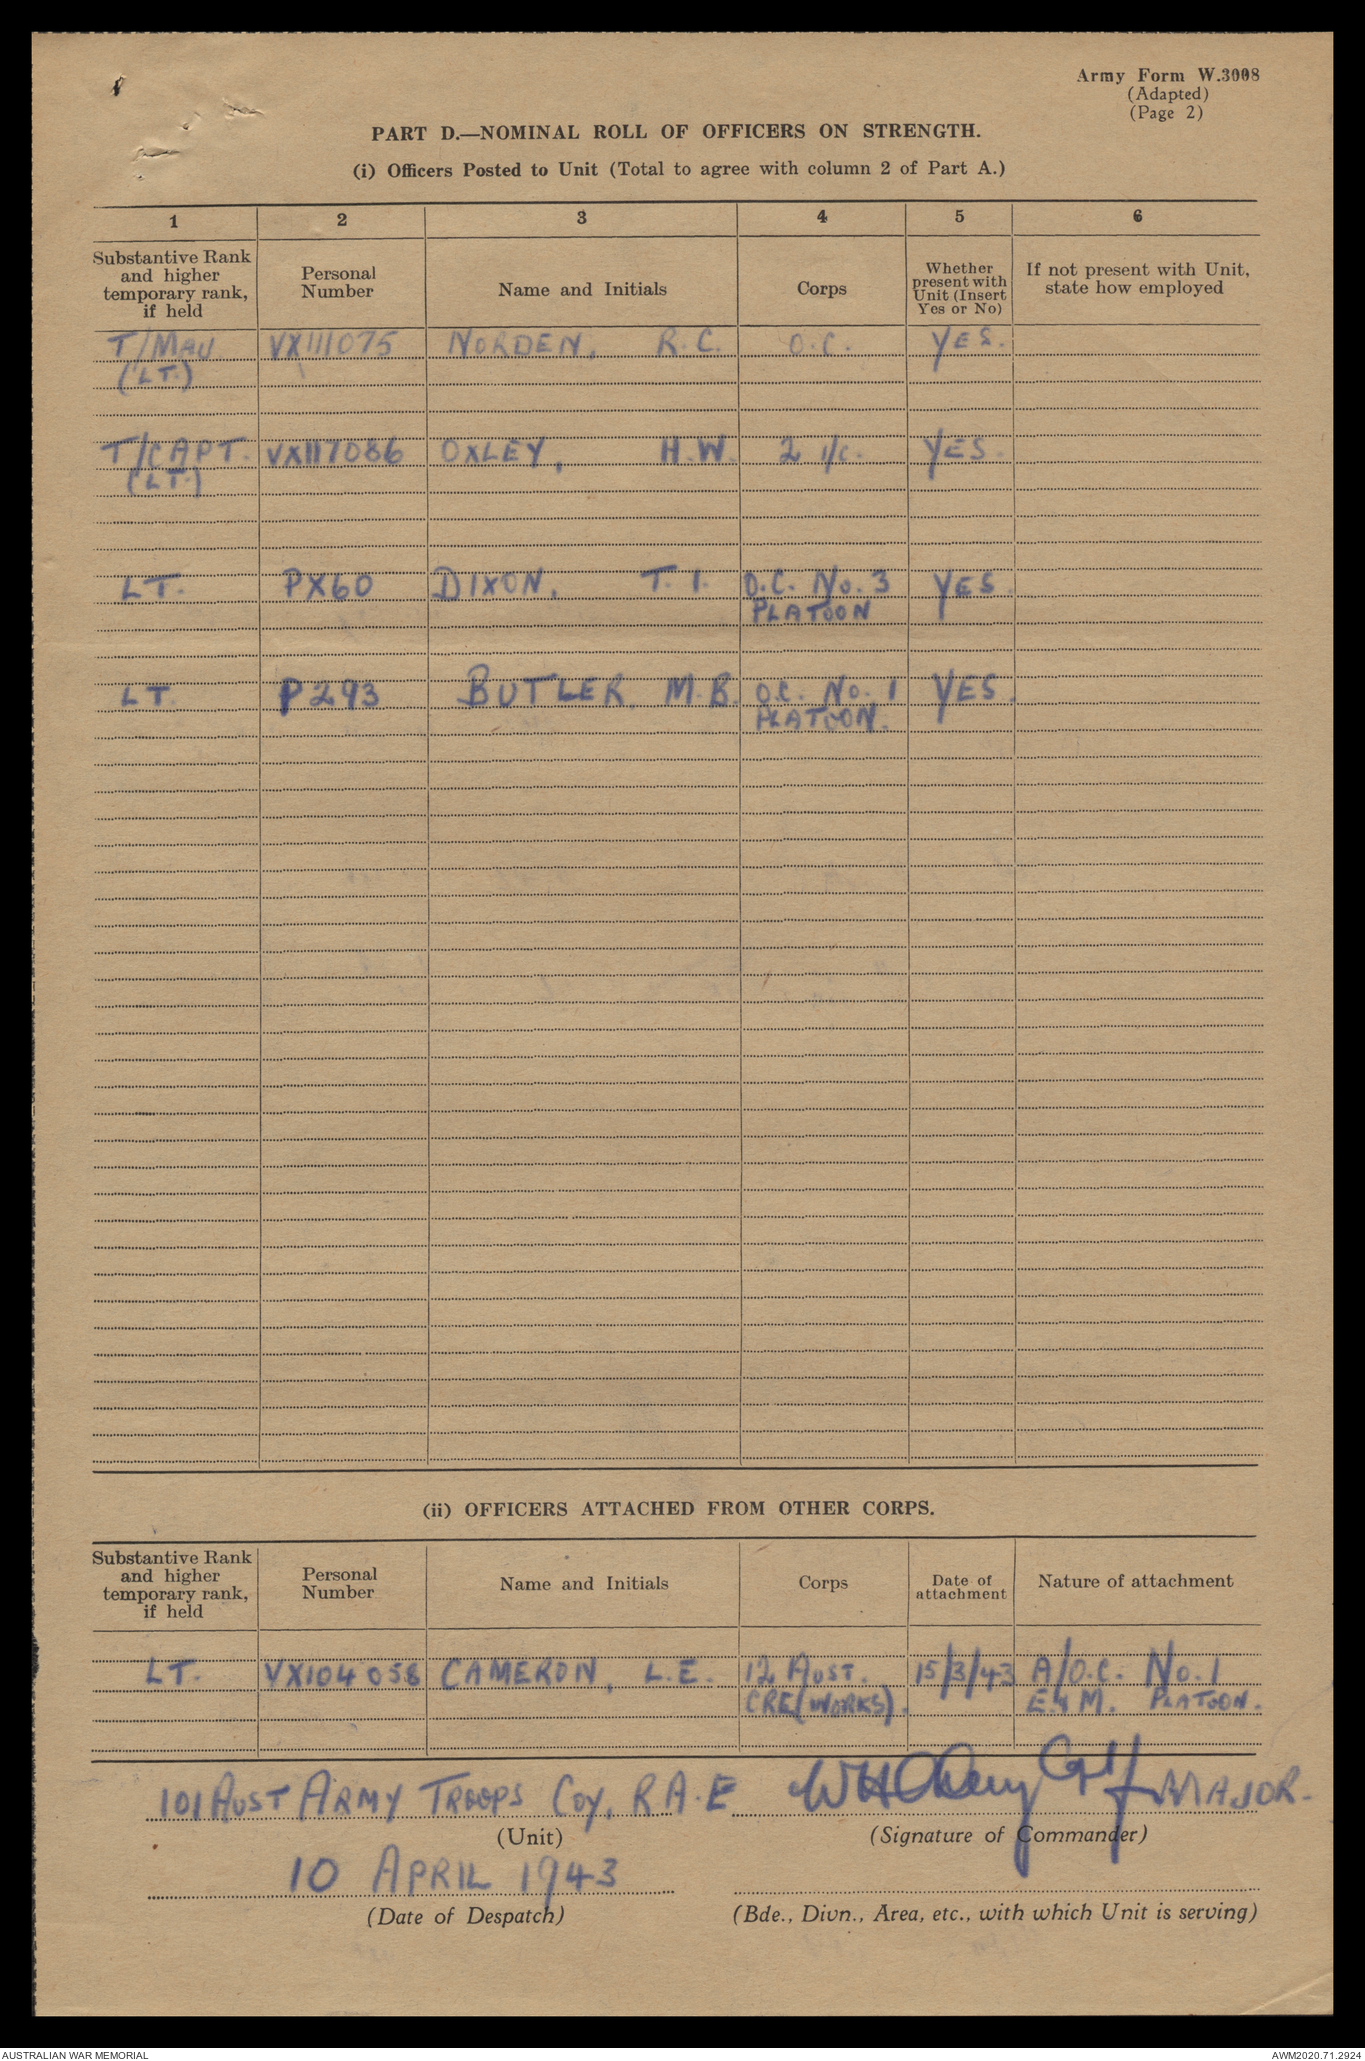 Army Form W.3008
(Adapted)
(Page 2)
PART D.—NOMINAL ROLL OF OFFICERS ON STRENGTH.
(i) Officers Posted to Unit (Total to agree with column 2 of Part A.)
1 2 3 4 5 6
Substantive Rank and higher temporary rank, if held
Personal Number
Name and Initials
Corps
Whether present with Unit (Insert Yes or No)
If not present with Unit, state how employed
T/MAJ VX111075 NORDEN, R.C. O.C. YES.
(LT.)
T/CAPT. VX117086 OXLEY, H.W. 2 i/c. YES.
(LT.)
LT. PX60 DIXON, T.I. O.C. No. 3 YES.
PLATOON
LT. P293 BUTLER, M.B. O.C. No. 1 YES.
PLATOON.
(ii) OFFICERS ATTACHED FROM OTHER CORPS.
Substantive Rank and higher temporary rank, if held
Personal Number
Name and Initials
Corps
Date of attachment
Nature of attachment
LT. VX104058 CAMERON, L.E. 12 AUST. 15/3/43 A/O.C. No. 1
CRE(WORKS). E & M. PLATOON.
101 AUST ARMY TROOPS COY, R.A.E MAJOR.
(Unit) (Signature of Commander)
10 APRIL 1943
(Date of Despatch) (Bde., Divn., Area, etc., with which Unit is serving)
AUSTRALIAN WAR MEMORIAL AWM2020.71.2924